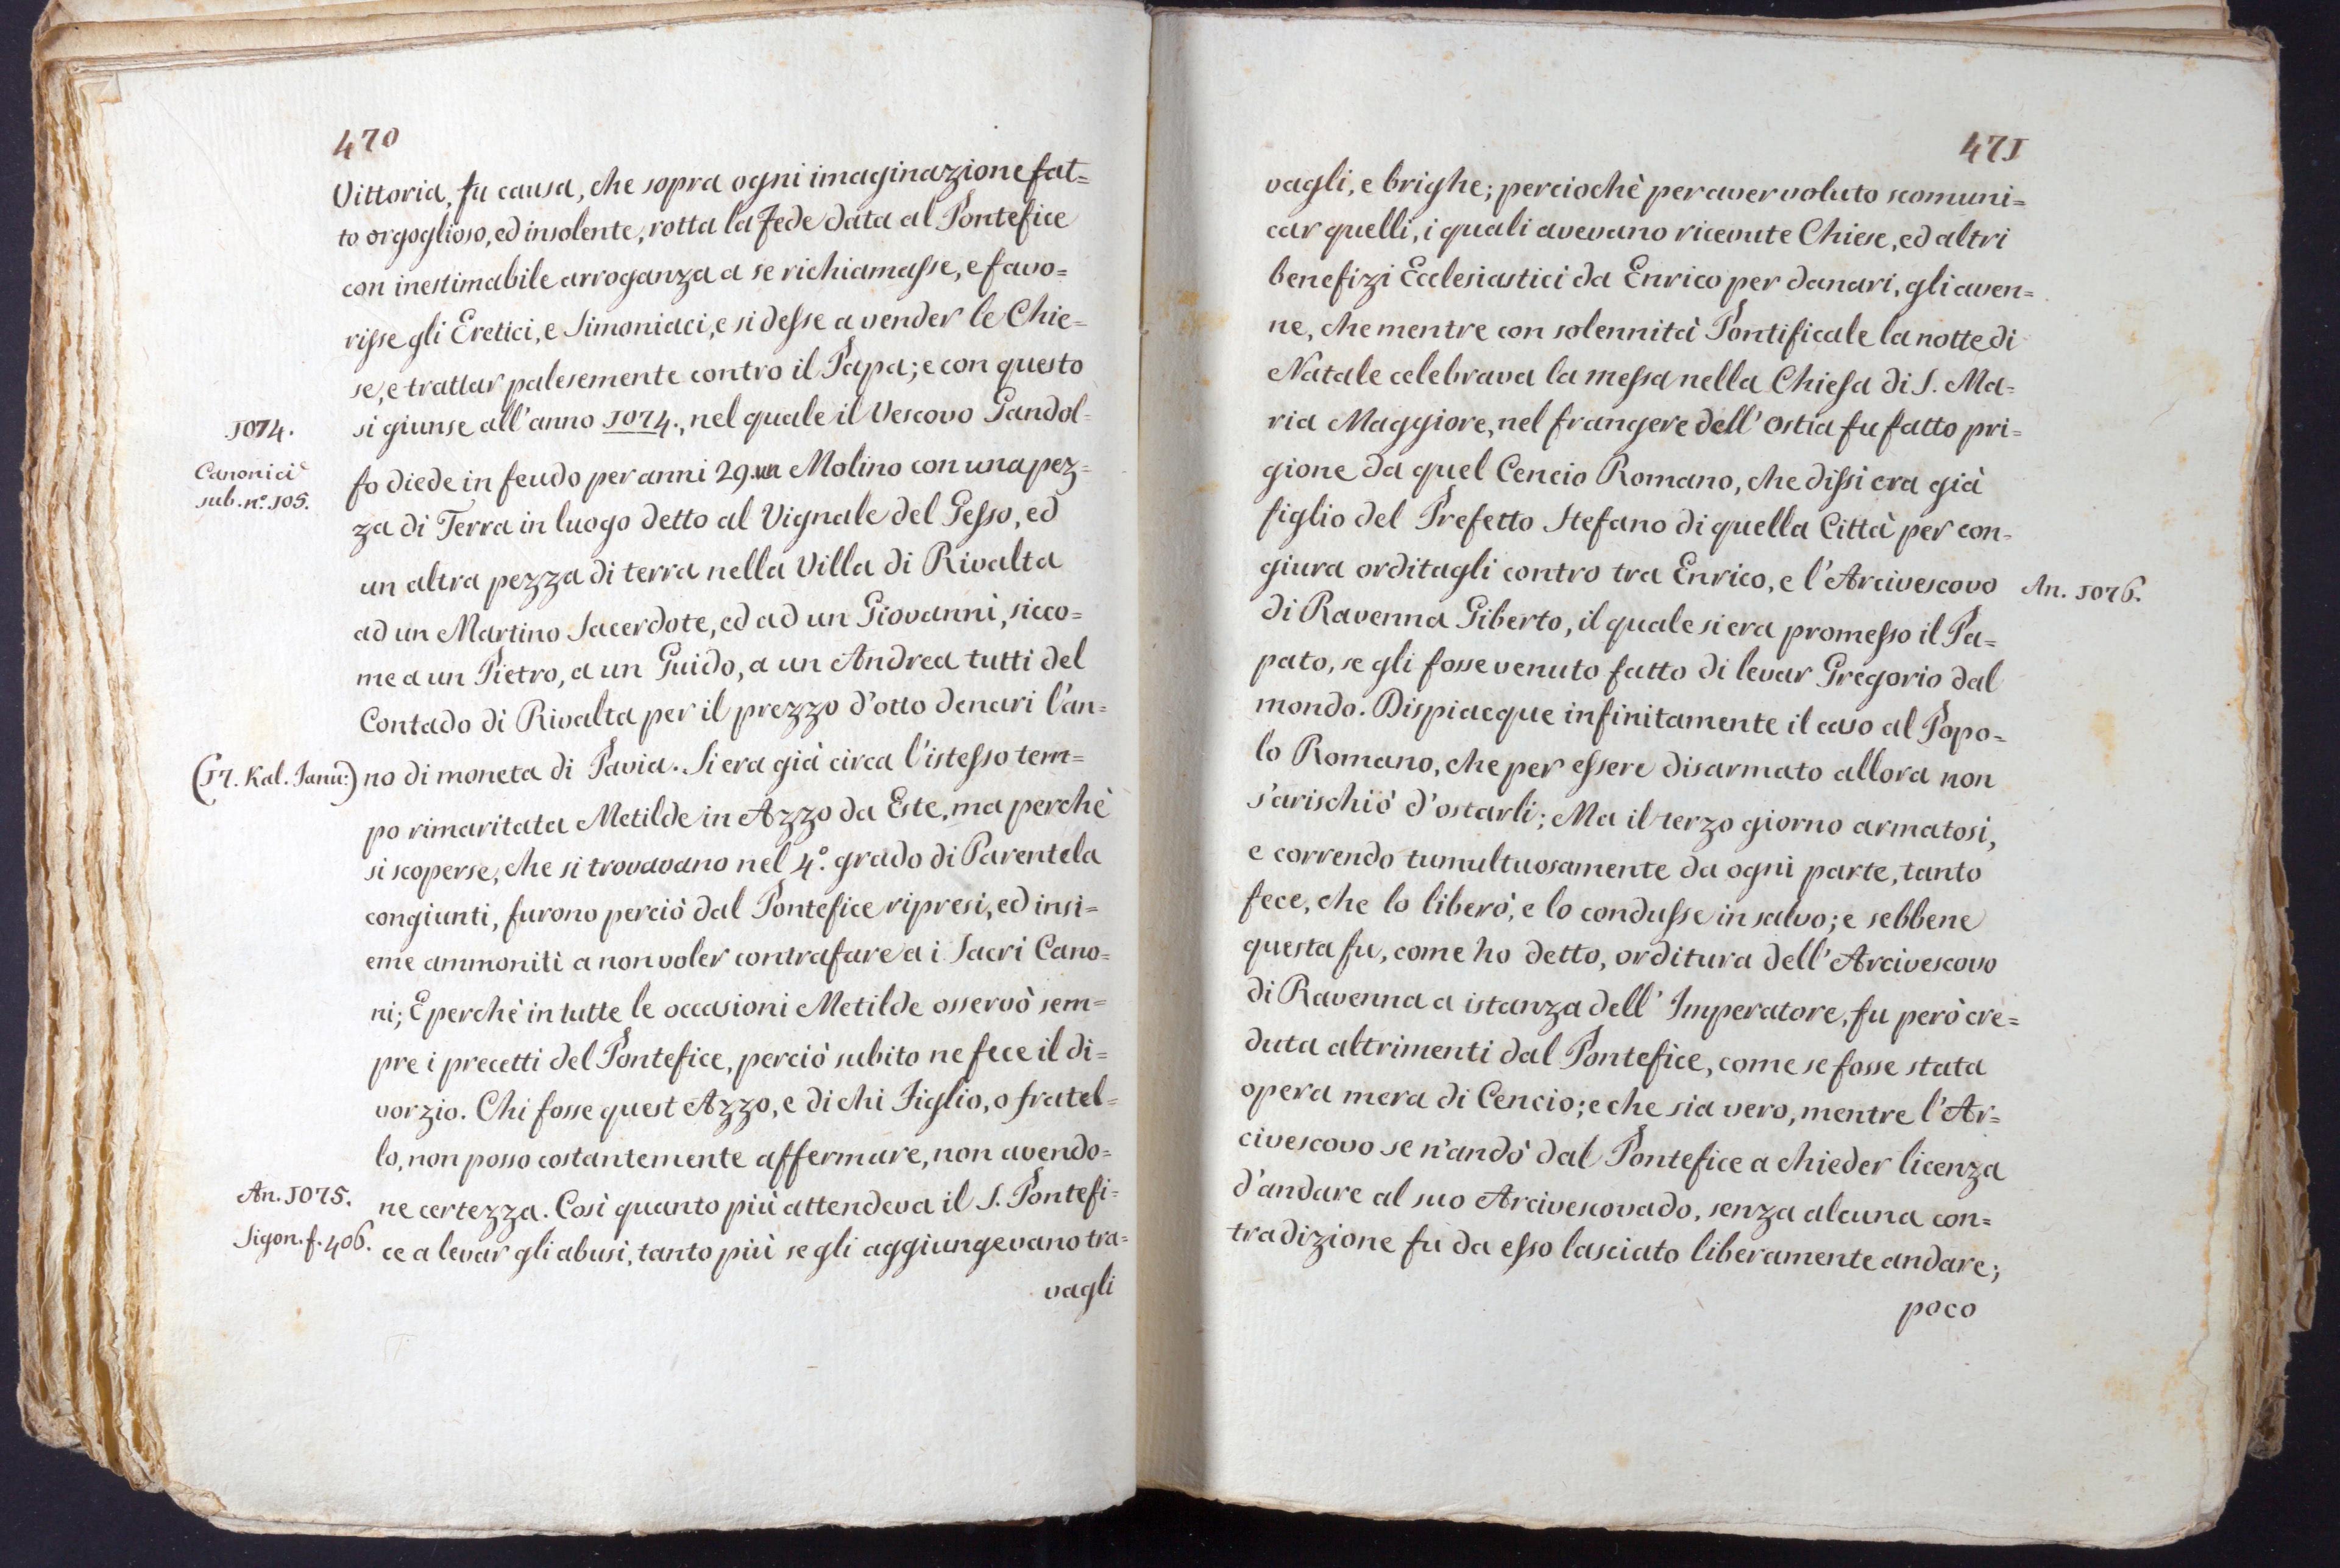 470
Vittoria, fu causa, che sopra ogni imaginazione fat=
to orgoglioso, ed insolente, rotta la Fede data al Pontefice
con inestimabile arroganza a se richiamasse, e favo=
risse gli Eretici, e Simoniaci, e si desse a vender le Chie=
se, e trattar palesemente contro il Papa; e con questo
1074.
si giunse all'anno 1074., nel quale il Vescovo Gandol=
Canonici
sub. nº. 105.
fo diede in feudo per anni 29. un Molino con una pez=
za di Terra in luogo detto al Vignale del Gesso, ed
un altra pezza di terra nella Villa di Rivalta
ad un Martino Sacerdote, ed ad un Giovanni, sicco=
me a un Pietro, a un Guido, a un Andrea tutti del
Contado di Rivalta per il prezzo d'otto denari l'an=
(17. Kal. Janu:)
no di moneta di Pavia. Si era già circa l'istesso tem=
po rimaritata Metilde in Azzo da Este, ma perchè
si scoperse, che si trovavano nel 4º. grado di Parentela
congiunti, furono perciò dal Pontefice ripresi, ed insi=
eme ammoniti a non voler contrafare a i Sacri Cano=
ni; E perchè in tutte le occasioni Metilde osservò sem=
pre i precetti del Pontefice, perciò subito ne fece il di=
vorzio. Chi fosse quest Azzo, e di chi Figlio, o fratel=
lo, non posso costantemente affermare, non avendo=
An. 1075.
ne certezza. Così quanto più attendeva il S. Pontefi=
Sigon. f. 406.
ce a levar gli abusi, tanto più se gli aggiungevano tra=
vagli
471
vagli, e brighe; perciochè per aver voluto scomuni=
car quelli, i quali avevano ricevute Chiese, ed altri
benefizi Ecclesiastici da Enrico per danari, gli aven=
ne, che mentre con solennità Pontificale la notte di
Natale celebrava la messa nella Chiesa di S. Ma=
ria Maggiore, nel frangere dell' Ostia fu fatto pri=
gione da quel Cencio Romano, che dissi era già
figlio del Prefetto Stefano di quella Città per con=
giura orditagli contro tra Enrico, e l'Arcivescovo
An. 1076.
di Ravenna Giberto, il quale si era promesso il Pa=
pato, se gli fosse venuto fatto di levar Gregorio dal
mondo. Dispiacque infinitamente il caso al Popo=
lo Romano, che per essere disarmato allora non
s'arischiò d'ostarli; Ma il terzo giorno armatosi,
e correndo tumultuosamente da ogni parte, tanto
fece, che lo liberò, e lo condusse in salvo; e sebbene
questa fu, come ho detto, orditura dell'Arcivescovo
di Ravenna a istanza dell' Imperatore, fu però cre=
duta altrimenti dal Pontefice, come se fosse stata
opera mera di Cencio; e che sia vero, mentre l'Ar=
civescovo se n'andò dal Pontefice a chieder licenza
d'andare al suo Arcivescovado, senza alcuna con=
tradizione fu da esso lasciato liberamente andare;
poco